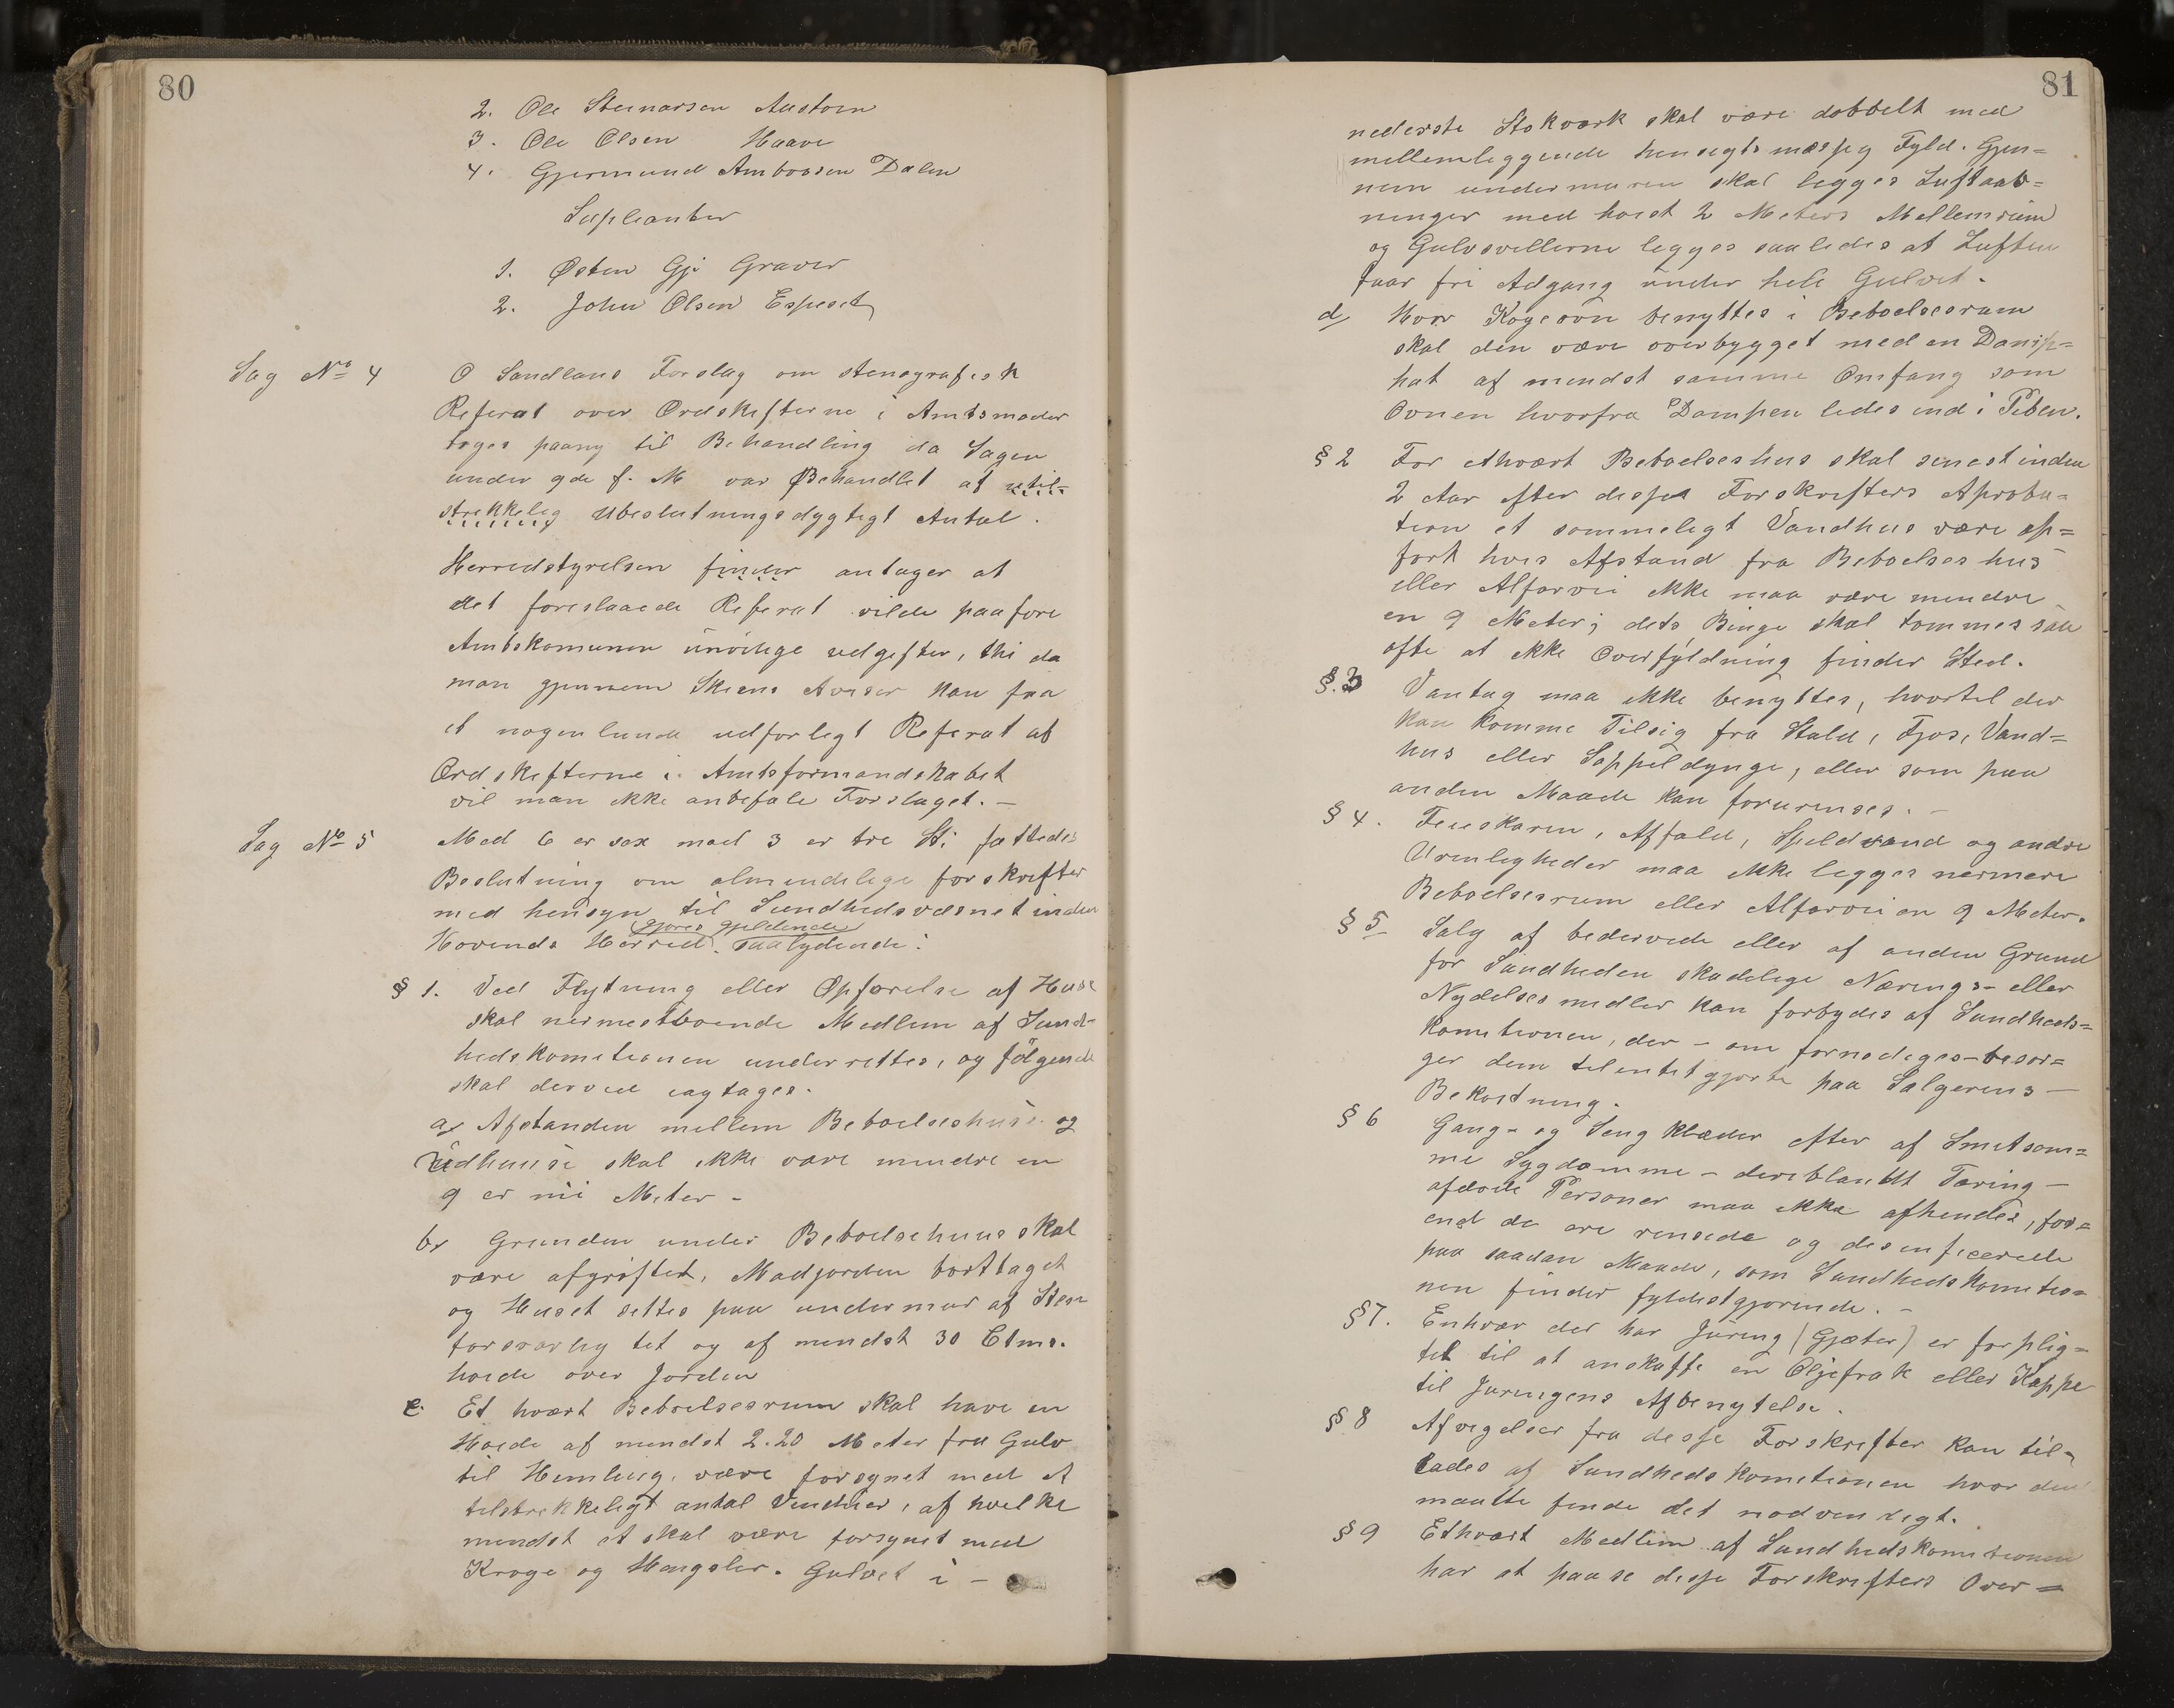 80
2. Ole Steinarsen Austorn
3. Ole Olsen Haave
4. Gjermund Ambrosen Dalen
Supleanter
1. Østen Gje Graver
2. John Olsen Espeset
Sag No 4 O Sandlans Forslag om stenografisk
Referat over Ordskifterne i Amtsmøder
toges paany til Behandling da Sagen
under 9de f. M var Behandlet af util-
strekkelig Ubeslutningsdygtigt Antal.
Herredstyrelsen finder antager at
det foreslaaede Referat vilde paaføre
Amtskomunen unødige udgifter, thi da
man gjennem Skiens Aviser kan faa
et nogenlunde udførligt Referat af
Ordskifterne i Amtsformandskabet
vil man ikke anbefale Forslaget. —
Sag No 5 Med 6 er sex mod 3 er tre St: fattedes
Beslutning om almindelige forskrifter
med hensyn til Sundhedsvæsnet inden
gjøres gjeldende
Hovinds Herred. saalydende:
§ 1. Ved Flytning eller Opførelse af Huse
skal nermestboende Medlem af Sund-
hedskometionen underrettes, og følgende
skal derved iagtages.
a, Afstanden mellem Beboelseshuse og
Udhuuse skal ikke være mindre en
9 er nii Meter -
b, Grunden under Beboelsehuus skal
være afgrøftet, Madjorden borttaget
og Huset settes paa undermur af Sten
forsvarlig tet og af mindst 30 Ctms.
høide over Jorden
c. Et hvært Beboelsesrum skal have en
Høide af mindst 2.20 Meter fra Gulv
til Himling, være forsynet med et
tilstrekkeligt antal Vinduer, af hvilke
mindst et skal være forsynet med
Kroge og Hengsler. Gulvet i -
81
nederste Stokværk skal være dobbelt med
mellemleggende hensigtsmæssig Fyld. Gjen=
nem undermuren skal legges Luftaab=
ninger med høist 2 Meters Mellemrum
og Gulvsvillerne legges saaledes at Luften
faar fri Adgang under hele Gulvet.
d, Hvor Kogeovn benyttes i Beboelsesrum
skal den være overbygget med en Damp=
hat af mindst samme Omfang som
Ovnen hvorfra Dampen ledes ind i Piben.
§ 2 For ethvært Beboelseshus skal senest inden
2 Aar efter disse Forskrifters Aproba=
tion et sømmeligt Vandhus være op=
ført hvis Afstand fra Beboelseshus
eller Alfarvei ikke maa være mindre
en 9 Meter; dets Binge skal tømmes saa
ofte at ikke Overfyldning finder Sted.
§. 3 Vantag maa ikke benyttes, hvortil der
kan komme Tilsig fra Stald, Fjøs, Vand=
hus eller Søppeldynge, eller som paa
anden Maade kan forurenses. -
§ 4. Feieskarn, Affald, Spildvand og andre
Urenligheder maa ikke legges nærmere
Beboelsesrum eller Alfarvei en 9 Meter.
§ 5 Salg af bedervede eller af anden Grund
for Sundheden skadelige Nærings- eller
Nydelsesmidler kan forbydes af Sundheds=
kometionen, der - om fornødiges - besør=
ger dem tilentetgjorte paa Selgerens —
Bekostning.
§ 6 Gang- og Sengklæder efter af Smitsom=
me Sygdomme - deriblandt Tæring -
afdøde Personer maa ikke afhendes, før=
end de ere rensede og desenficerede
paa saadan Maade, som Sundhedskometio=
nen finder fyldestgjørende. -
§ 7. Enhver der har Juring (Gjæter) er forplig=
tet til at anskaffe en Oljefrak eller Kappe
til Juringens Afbenytelse.
§ 8 Afvigelser fra disse Forskrifter kan til=
lades af Sundhedskometionen hvor den
maatte finde det nødvendigt.
§ 9 Ethvært Medlem af Sundhedskometionen
har at paase disse Forskrifters Over=